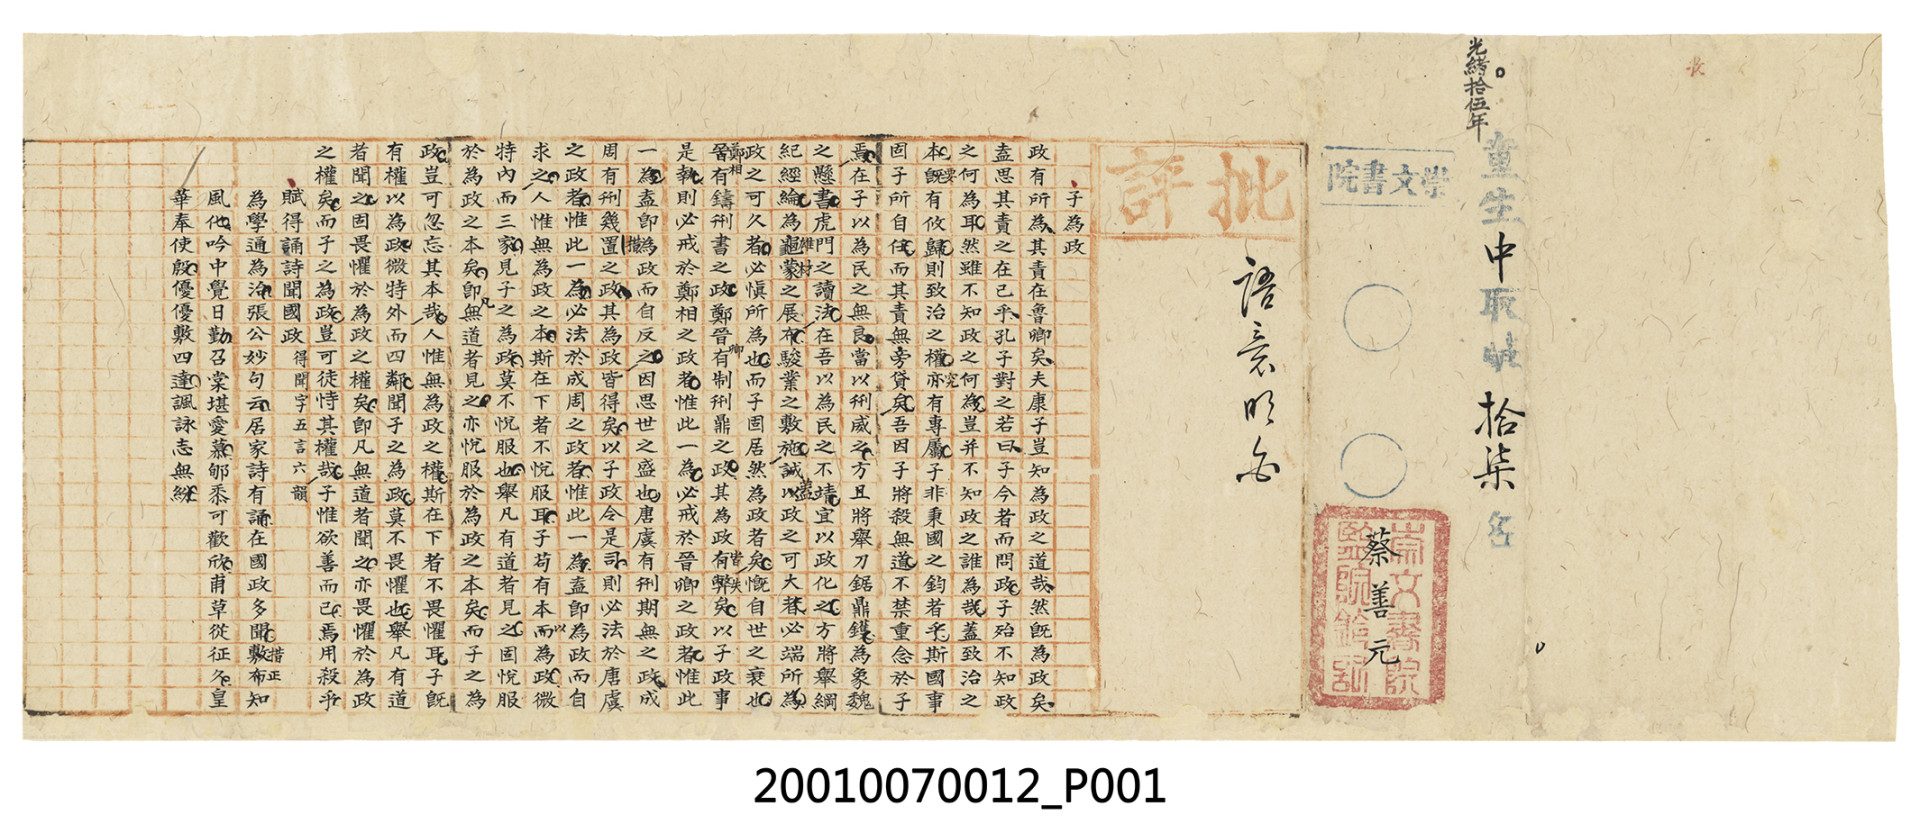 光緒拾伍年
童生中取 拾柒名
崇文書院
蔡善元
崇文書院監院鈐記
批評
語意明白
子為政
政有所為其責在魯卿矣夫康子豈知為政之道哉然既為政矣
盍思其責之在己乎孔子對之若曰子今者而問政子殆不知政
之何為耳然雖不知政之何為豈并不知政之誰為哉蓋致治之
本既有攸歸則致治之權亦有專屬子非秉國之鈞者乎斯國事
固子所自任而其責無旁貸矣吾因子將殺無道不禁重念於子
焉在子以為民之無良當以刑威之方且將舉刀鋸鼎鑊為象魏
之懸書虎門之讀法在吾以為民之不靖宜以政化之方將舉綱
紀經綸為 蒙之展布駿業之敷施誠以政之可大者必端所為
政之可久者必慎所為也而子固居然為政者矣慨自世之衰也
晉有鑄刑書之政鄭晉有制刑鼎之政其為政有弊矣以子政事
是執則必戒於鄭相之政者惟此一為必戒於晉卿之政者惟此
一為盍即為政而自反之因思世之盛也唐虞有刑期無之政成
周有刑幾置之政其為政皆得矣以子政令是司則必法於唐虞
之政者惟此一為必法於成周之政者惟此一為盍即為政而自
求之人惟無為政之本斯在下者不悅服耳子苟有本而為政微
特內而三家見子之為政莫不悅服也舉凡有道者見之固悅服
於為政之本矣即無道者見之亦悅服於為政之本矣而子之為
政豈可忽忘其本哉人惟無為政之權斯在下者不畏懼耳子既
有權以為政微特外而四鄰聞子之為政莫不畏懼也舉凡有道
者聞之固畏懼於為政之權矣即凡無道者聞之亦畏懼於為政
之權矣而子之為政豈可徒恃其權哉子惟欲善而已焉用殺乎
賦得誦詩聞國政得聞字五言六韻
為學通為治張公妙句云居家詩有誦在國政多聞敷布知
風化吟中覺日勤召棠堪愛慕郇黍可歡欣甫草從征久皇
華奉使殷優優敷四達諷詠志無紛